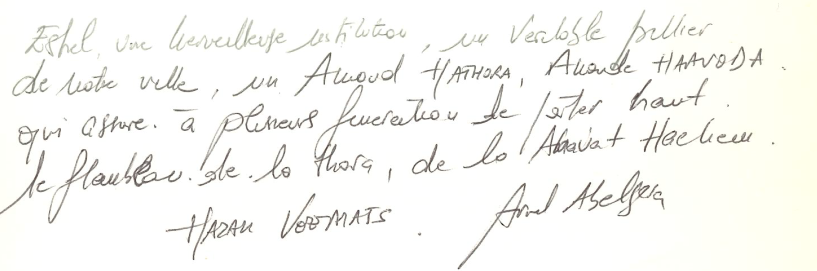 Eshel, une merveilleuse institution, un véritable pilier
de notre ville, un Amoud HATHORA, Amoude HAAVODA.
qui assure à plusieurs génération de porter haut.
le flambeau de la thora, de la Ahavat Hachem.
HAZAK VEEMATS. Abelgera